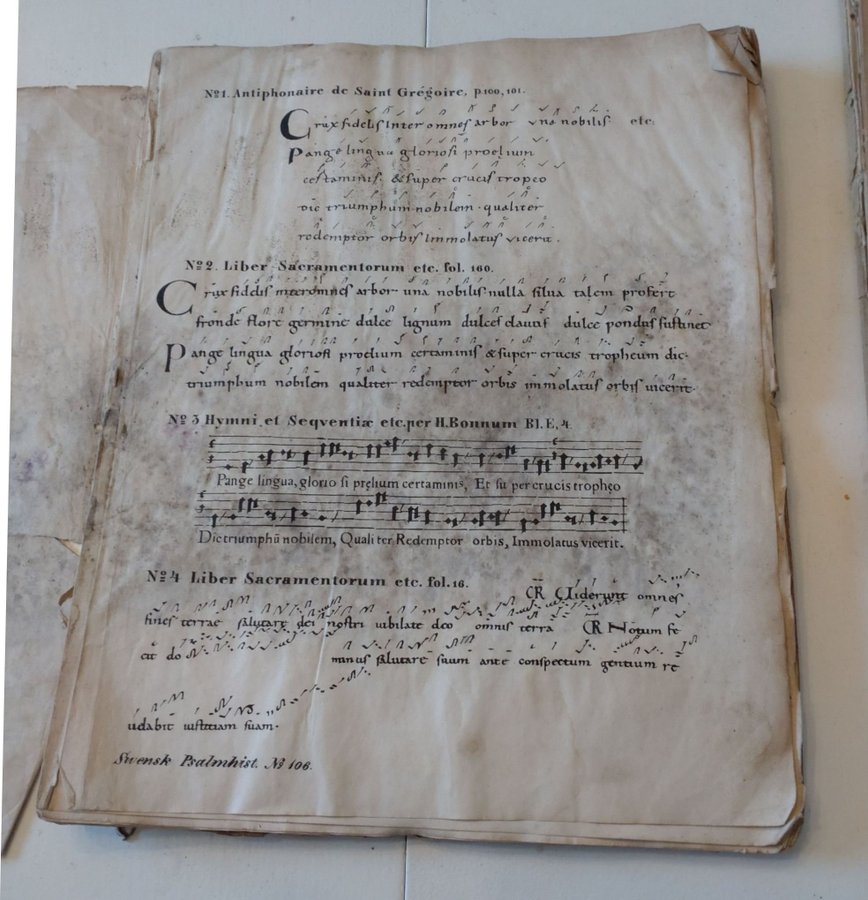 No1. Antiphonaire de Saint Grégoire, p.100, 101.
Crux fidelis Inter omnes arbor una nobilis etc.
Pange lingua gloriosi proelium
certaminis. & super crucis tropeo
Dic triumphum nobilem. qualiter
redemptor orbis Immolatus vicerit.
No2. Liber Sacramentorum etc. fol. 160.
Crux fidelis inter omnes arbor una nobilis nulla silva talem profert
fronde flore germine dulce lignum dulces clavus dulce pondus sustinet
Pange lingua gloriosi proelium certaminis & super crucis tropheum dic
triumphum nobilem qualiter redemptor orbis immolatus orbis vicerit.
No 3 Hymni et Seqventiæ etc. per H. Bonnum Bl. E, 4.
Pange lingua, glorio si prelium certaminis, Et su per crucis tropheo
Dic triumphū nobilem, Quali ter Redemptor orbis, Immolatus vicerit.
No 4 Liber Sacramentorum etc. fol. 16.
omnes
fines terrae salutare dei nostri iubilate deo omnis terra Notum fe
cit do minus salutare suum ante conspectum gentium re
udabit iustitiam suam.
Swensk Psalmhist. No 106.